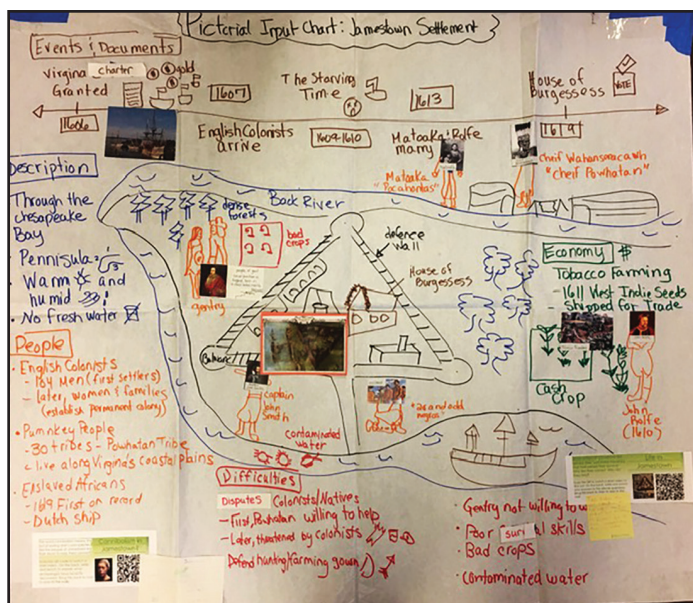 Pictorial Input Chart: Jamestown Settlement
Events & Documents
Virgina charter
Granted
gold
1606
1607
English Colonists
arrive
The Starving
Time
1609-1610
1613
Matoaka & Rolfe
marry
Matoaka
"Pocahontas"
House of
Burgessess
VOTE
1619
Cheif Wahunsonacawh
"Cheif Powhatan"
Description
Through the
Chesapeake
Bay
- Pennisula
• Warm and
humid
• No fresh water
People
• English Colonists
- 104 Men (first settlers)
- Later, women & families
(establish permanent colony)
• Pumnkey People
- 30 tribes - Powhatan Tribe
- live along Virginia's coastal plains
• Enslaved Africans
- 1619 First on record
- Dutch ship
Back River
dense
forests
bad
crops
gentry
defence
wall
House of
Burgessess
Captain
John
Smith
"20 and odd
negros"
contaminated
water
Economy $
Tobacco Farming
- 1611 West Indie Seeds
- Shipped for Trade
Cash
Crop
John
Rolfe
(1610)
Difficulties
Disputes Colonists/Natives
- First, Powhatan willing to help
- Later, threatened by colonists
Defend hunting/farming
• Gentry not willing to
• Poor skills
• Bad crops
• contaminated water
Life in
Jamestown
Contribution to
Jamestown